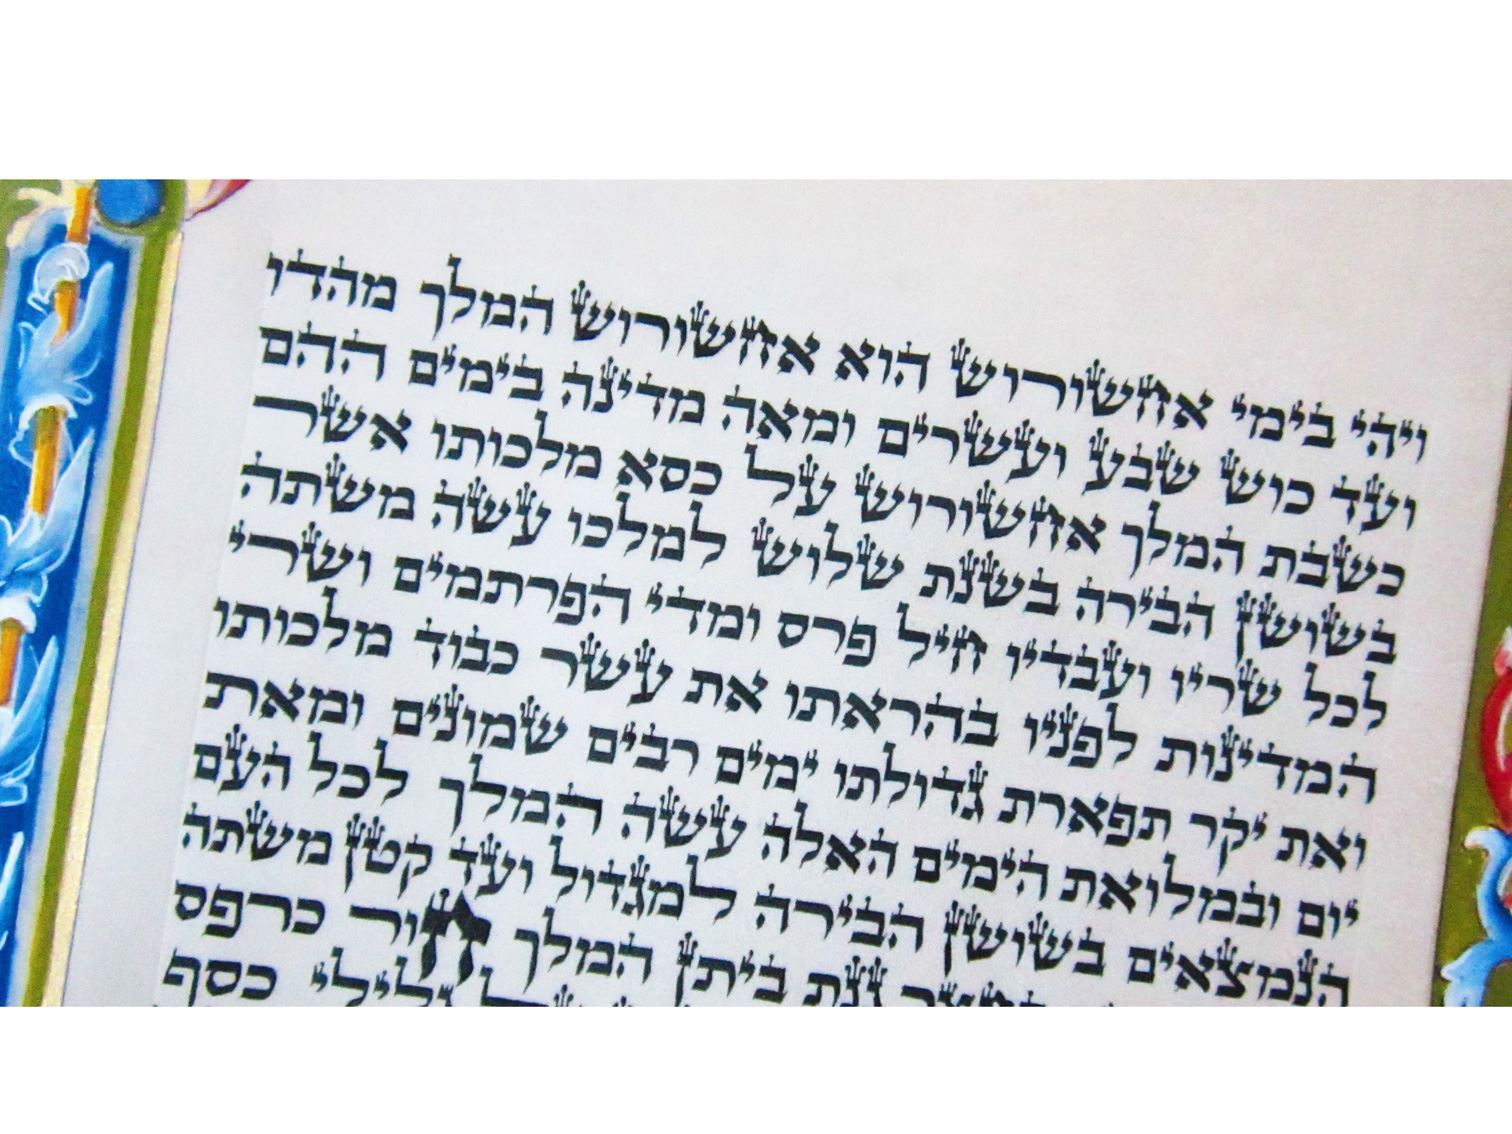 ויהי בימי אחשורוש הוא אחשורוש המלך מהדו
ועד כוש שבע ועשרים ומאה מדינה בימים ההם
כשבת המלך אחשורוש על כסא מלכותו אשר
בשושן הבירה בשנת שלוש למלכו עשה משתה
לכל שריו ועבדיו חיל פרס ומדי הפרתמים ושרי
המדינות לפניו בהראתו את עשר כבוד מלכותו
ואת יקר תפארת גדולתו ימים רבים שמונים ומאת
יום ובמלואת הימים האלה עשה המלך לכל העם
הנמצאים בשושן הבירה למגדול ועד קטן משתה
גנת ביתן המלך חור כרפס
כסף